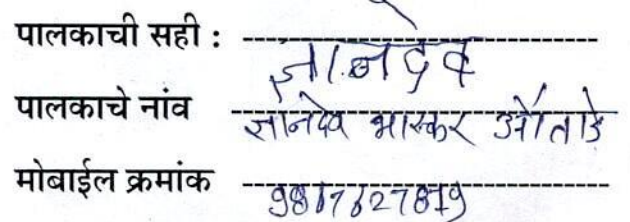 पालकाची सही : ज्ञानदेव
पालकाचे नांव ज्ञानदेव भास्कर औताडे
मोबाईल क्रमांक 9867627879